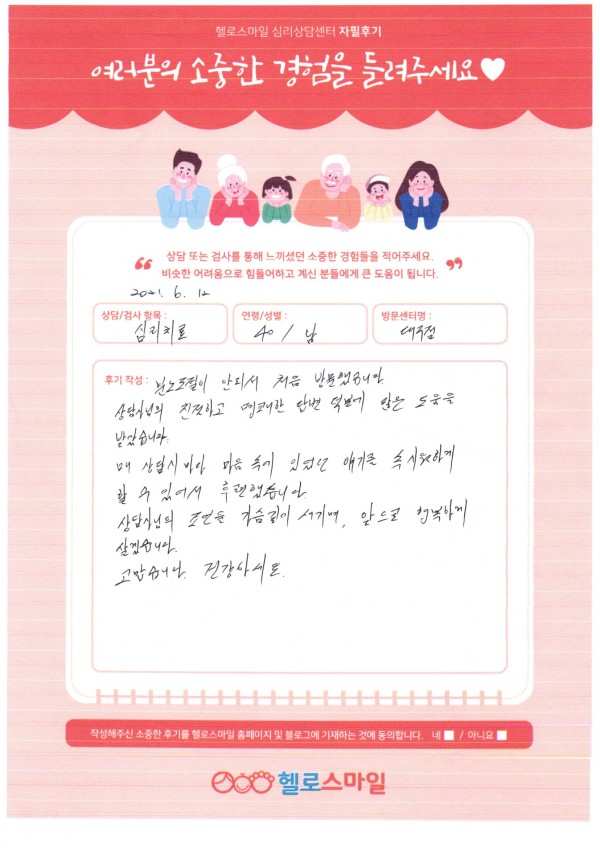 헬로스마일 심리상담센터 자필후기
여러분의 소중한 경험을 들려주세요
상담 또는 검사를 통해 느끼셨던 소중한 경험들을 적어주세요.
비슷한 어려움으로 힘들어하고 계신 분들에게 큰 도움이 됩니다.
2021. 6. 12
상담/검사 항목 : 심리치료
연령/성별 : 40 / 남
방문센터명 : 대구점
후기 작성 : 분노조절이 안되서 처음 방문했습니다
상담사님의 친절하고 명쾌한 답변 덕분에 많은 도움을
받았습니다.
매 상담시마다 마음 속에 있었던 얘기를 속 시원하게
할 수 있어서 후련했습니다
상담사님의 조언을 가슴깊이 새기며, 앞으로 행복하게
살겠습니다.
고맙습니다. 건강하세요.
작성해주신 소중한 후기를 헬로스마일 홈페이지 및 블로그에 기재하는 것에 동의합니다. 네 / 아니요
헬로스마일